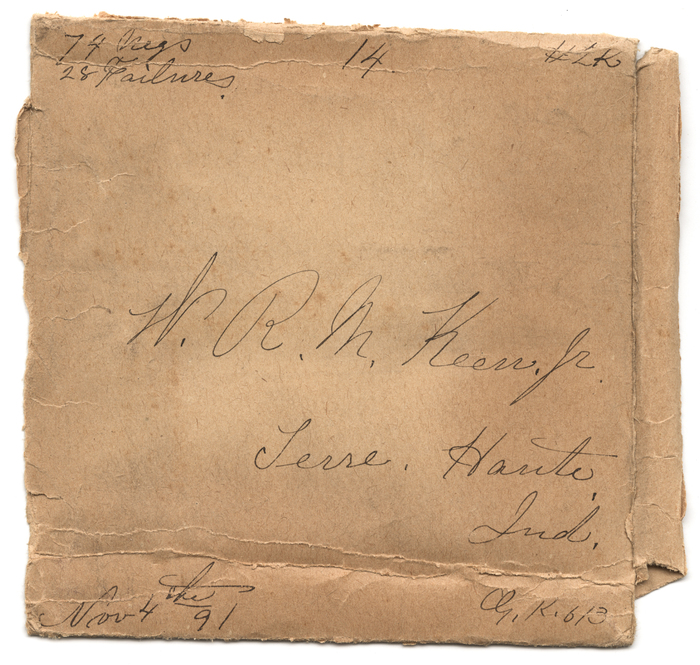 74 Negs 14 #2K
28 Failures.
W. R. M. Keen. Jr.
Terre. Haute,
Ind.
Nov 4 the 91 G. K. 613